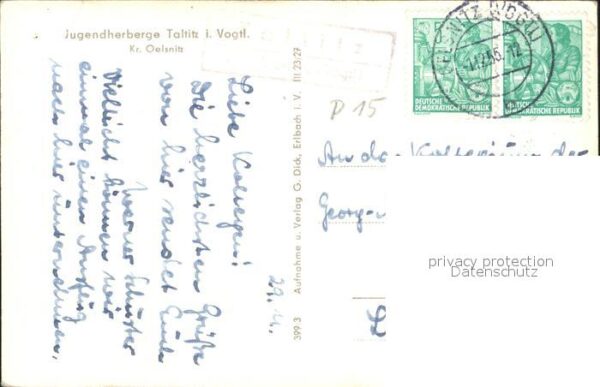 Jugendherberge Taltitz i. Vogtl.
Kr. Oelsnitz
29.11.
Liebe Kollegen!
Die herzlichsten Grüße
von hier sendet Euch
Werner Schuster
Vielleicht können wir
einmal einen Ausflug
nach hier unternehmen.
399 3 Aufnahme u. Verlag G. Dick, Erlbach i. V. III 23:27
P 15
OELSNITZ (VOGTL)
DEUTSCHE
DEMOKRATISCHE REPUBLIK
5
DEUTSCHE
DEMOKRATISCHE REPUBLIK
5
An das Kollegium der
Georg-
L
privacy protection
Datenschutz